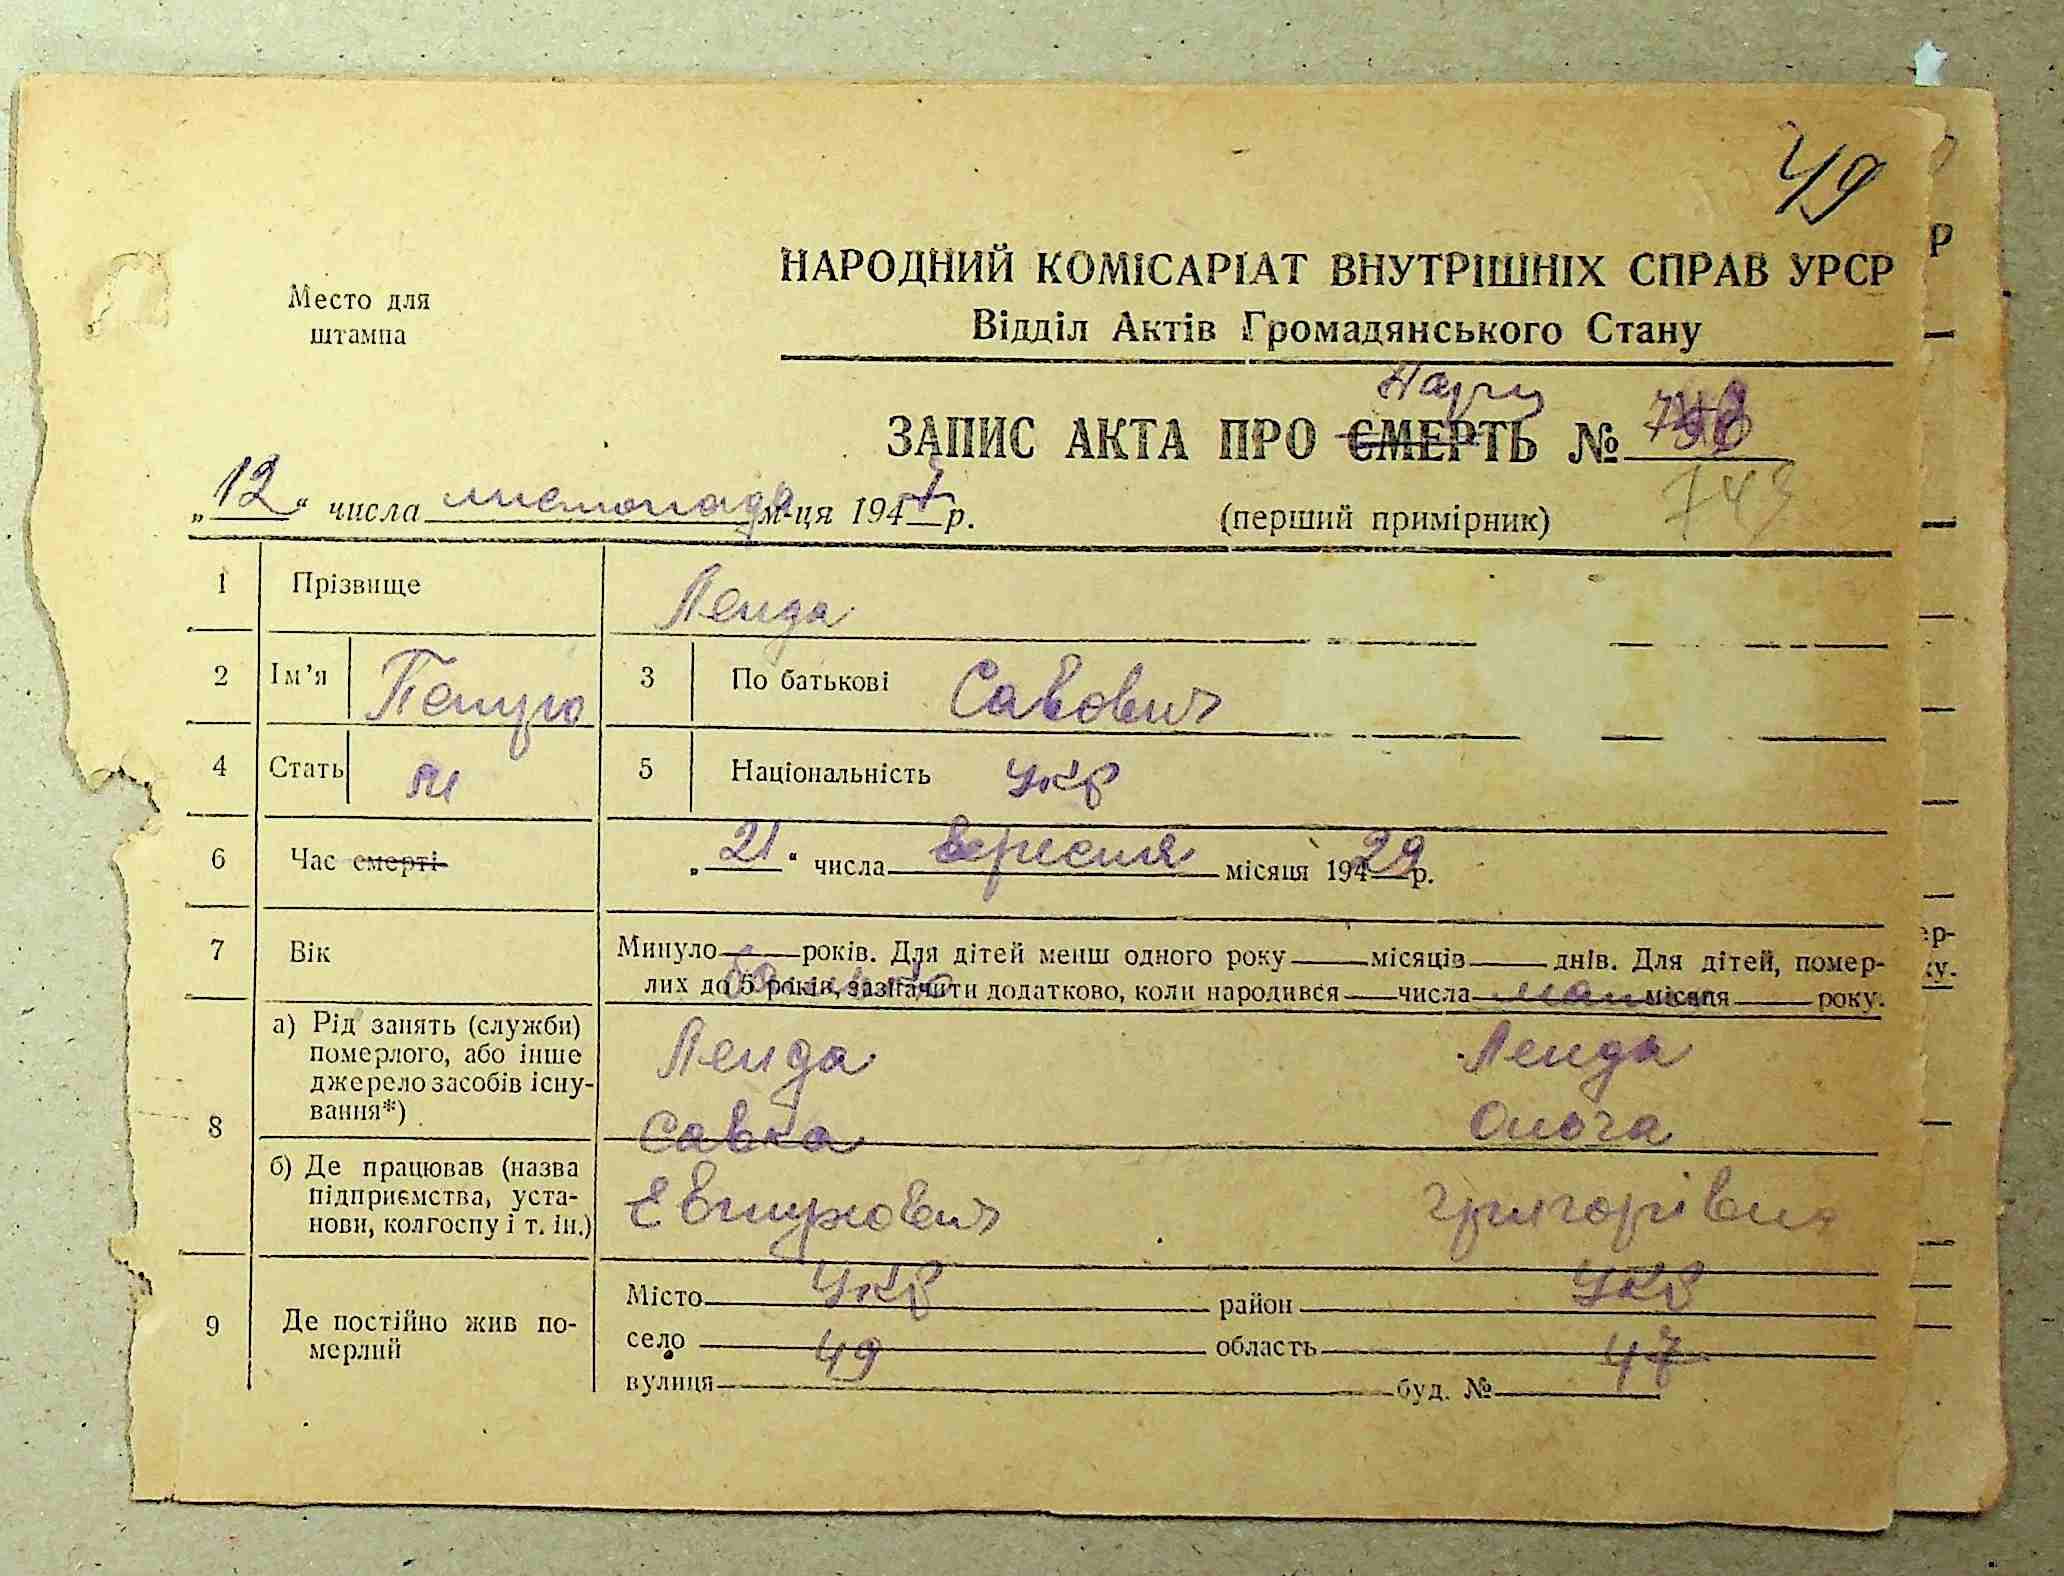 49
НАРОДНИЙ КОМІСАРІАТ ВНУТРІШНІХ СПРАВ УРСР
Место для
штампа
Відділ Актів Громадянського Стану
ЗАПИС АКТА ПРО СМЕРТЬ №
743
„12“ числа листопада м-ця 1947 р.
(перший примірник)
1 Прізвище Ленда
2 Ім'я Петро 3 По батькові Савович
4 Стать м 5 Національність Укр
6 Час смерті „21“ числа вересня місяця 194 29 р.
7 Вік Минуло років. Для дітей менш одного року місяців днів. Для дітей, помер-
лих до 5 років, зазначити додатково, коли народився числа місяця року.
а) Рід занять (служби)
померлого, або інше
джерело засобів існу-
вання*)
Ленда Ленда
Савка Ольга
8
б) Де працював (назва
підприємства, уста-
нови, колгоспу і т. ін.)
Евтухович Григорівна
9 Де постійно жив по-
мерлий
Місто Укр район Укр
село 49 область 47
вулиця буд. №